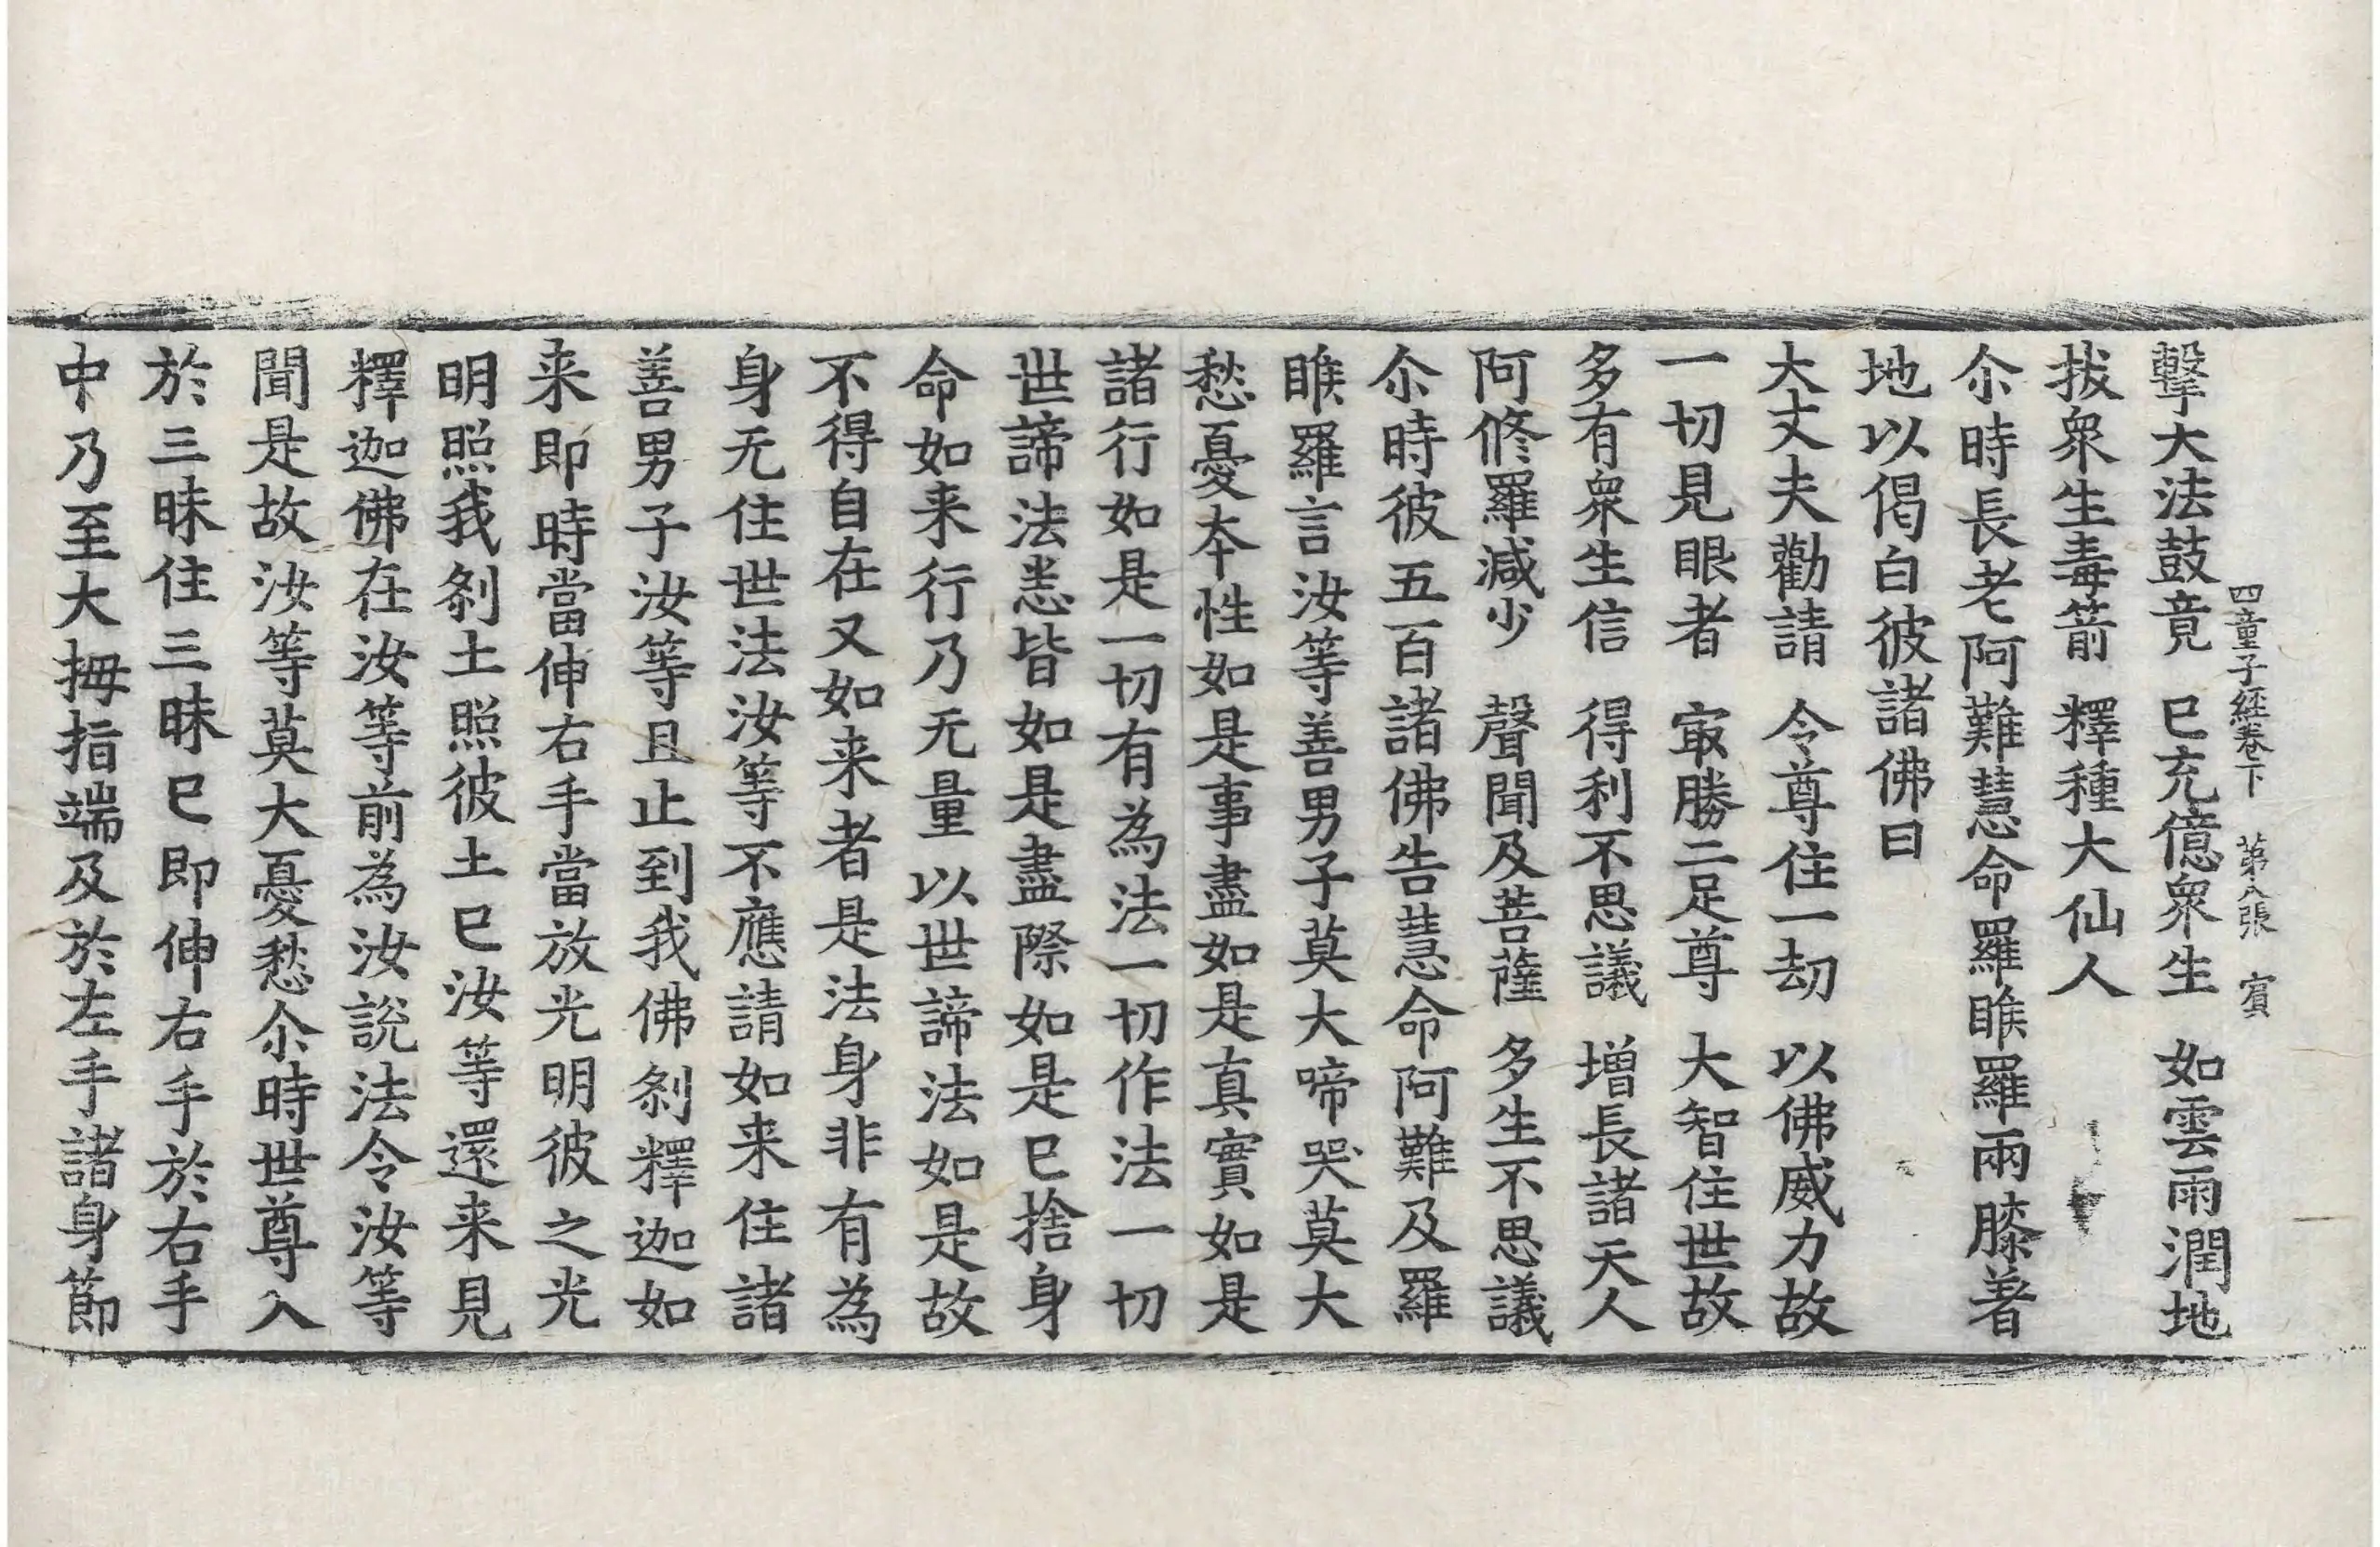 四童子經卷下　第八張　賓
擊大法鼓竟　已充億衆生　如雲雨潤地
拔衆生毒箭　釋種大仙人
尒時長老阿難慧命羅睺羅兩膝著
地以偈白彼諸佛曰
大丈夫勸請　令尊住一劫　以佛威力故
一切見眼者　㝡勝二足尊　大智住世故
多有衆生信　得利不思議　增長諸天人
阿修羅減少　聲聞及菩薩　多生不思議
尒時彼五百諸佛告慧命阿難及羅
睺羅言汝等善男子莫大啼哭莫大
愁憂本性如是事盡如是真實如是
諸行如是一切有為法一切作法一切
世諦法悉皆如是盡際如是已捨身
命如来行乃无量以世諦法如是故
不得自在又如来者是法身非有為
身无住世法汝等不應請如来住諸
善男子汝等且止到我佛剎釋迦如
来即時當伸右手當放光明彼之光
明照我剎土照彼土已汝等還来見
釋迦佛在汝等前為汝說法令汝等
聞是故汝等莫大憂愁尒時世尊入
於三昧住三昧已即伸右手於右手
中乃至大拇指端及於左手諸身節